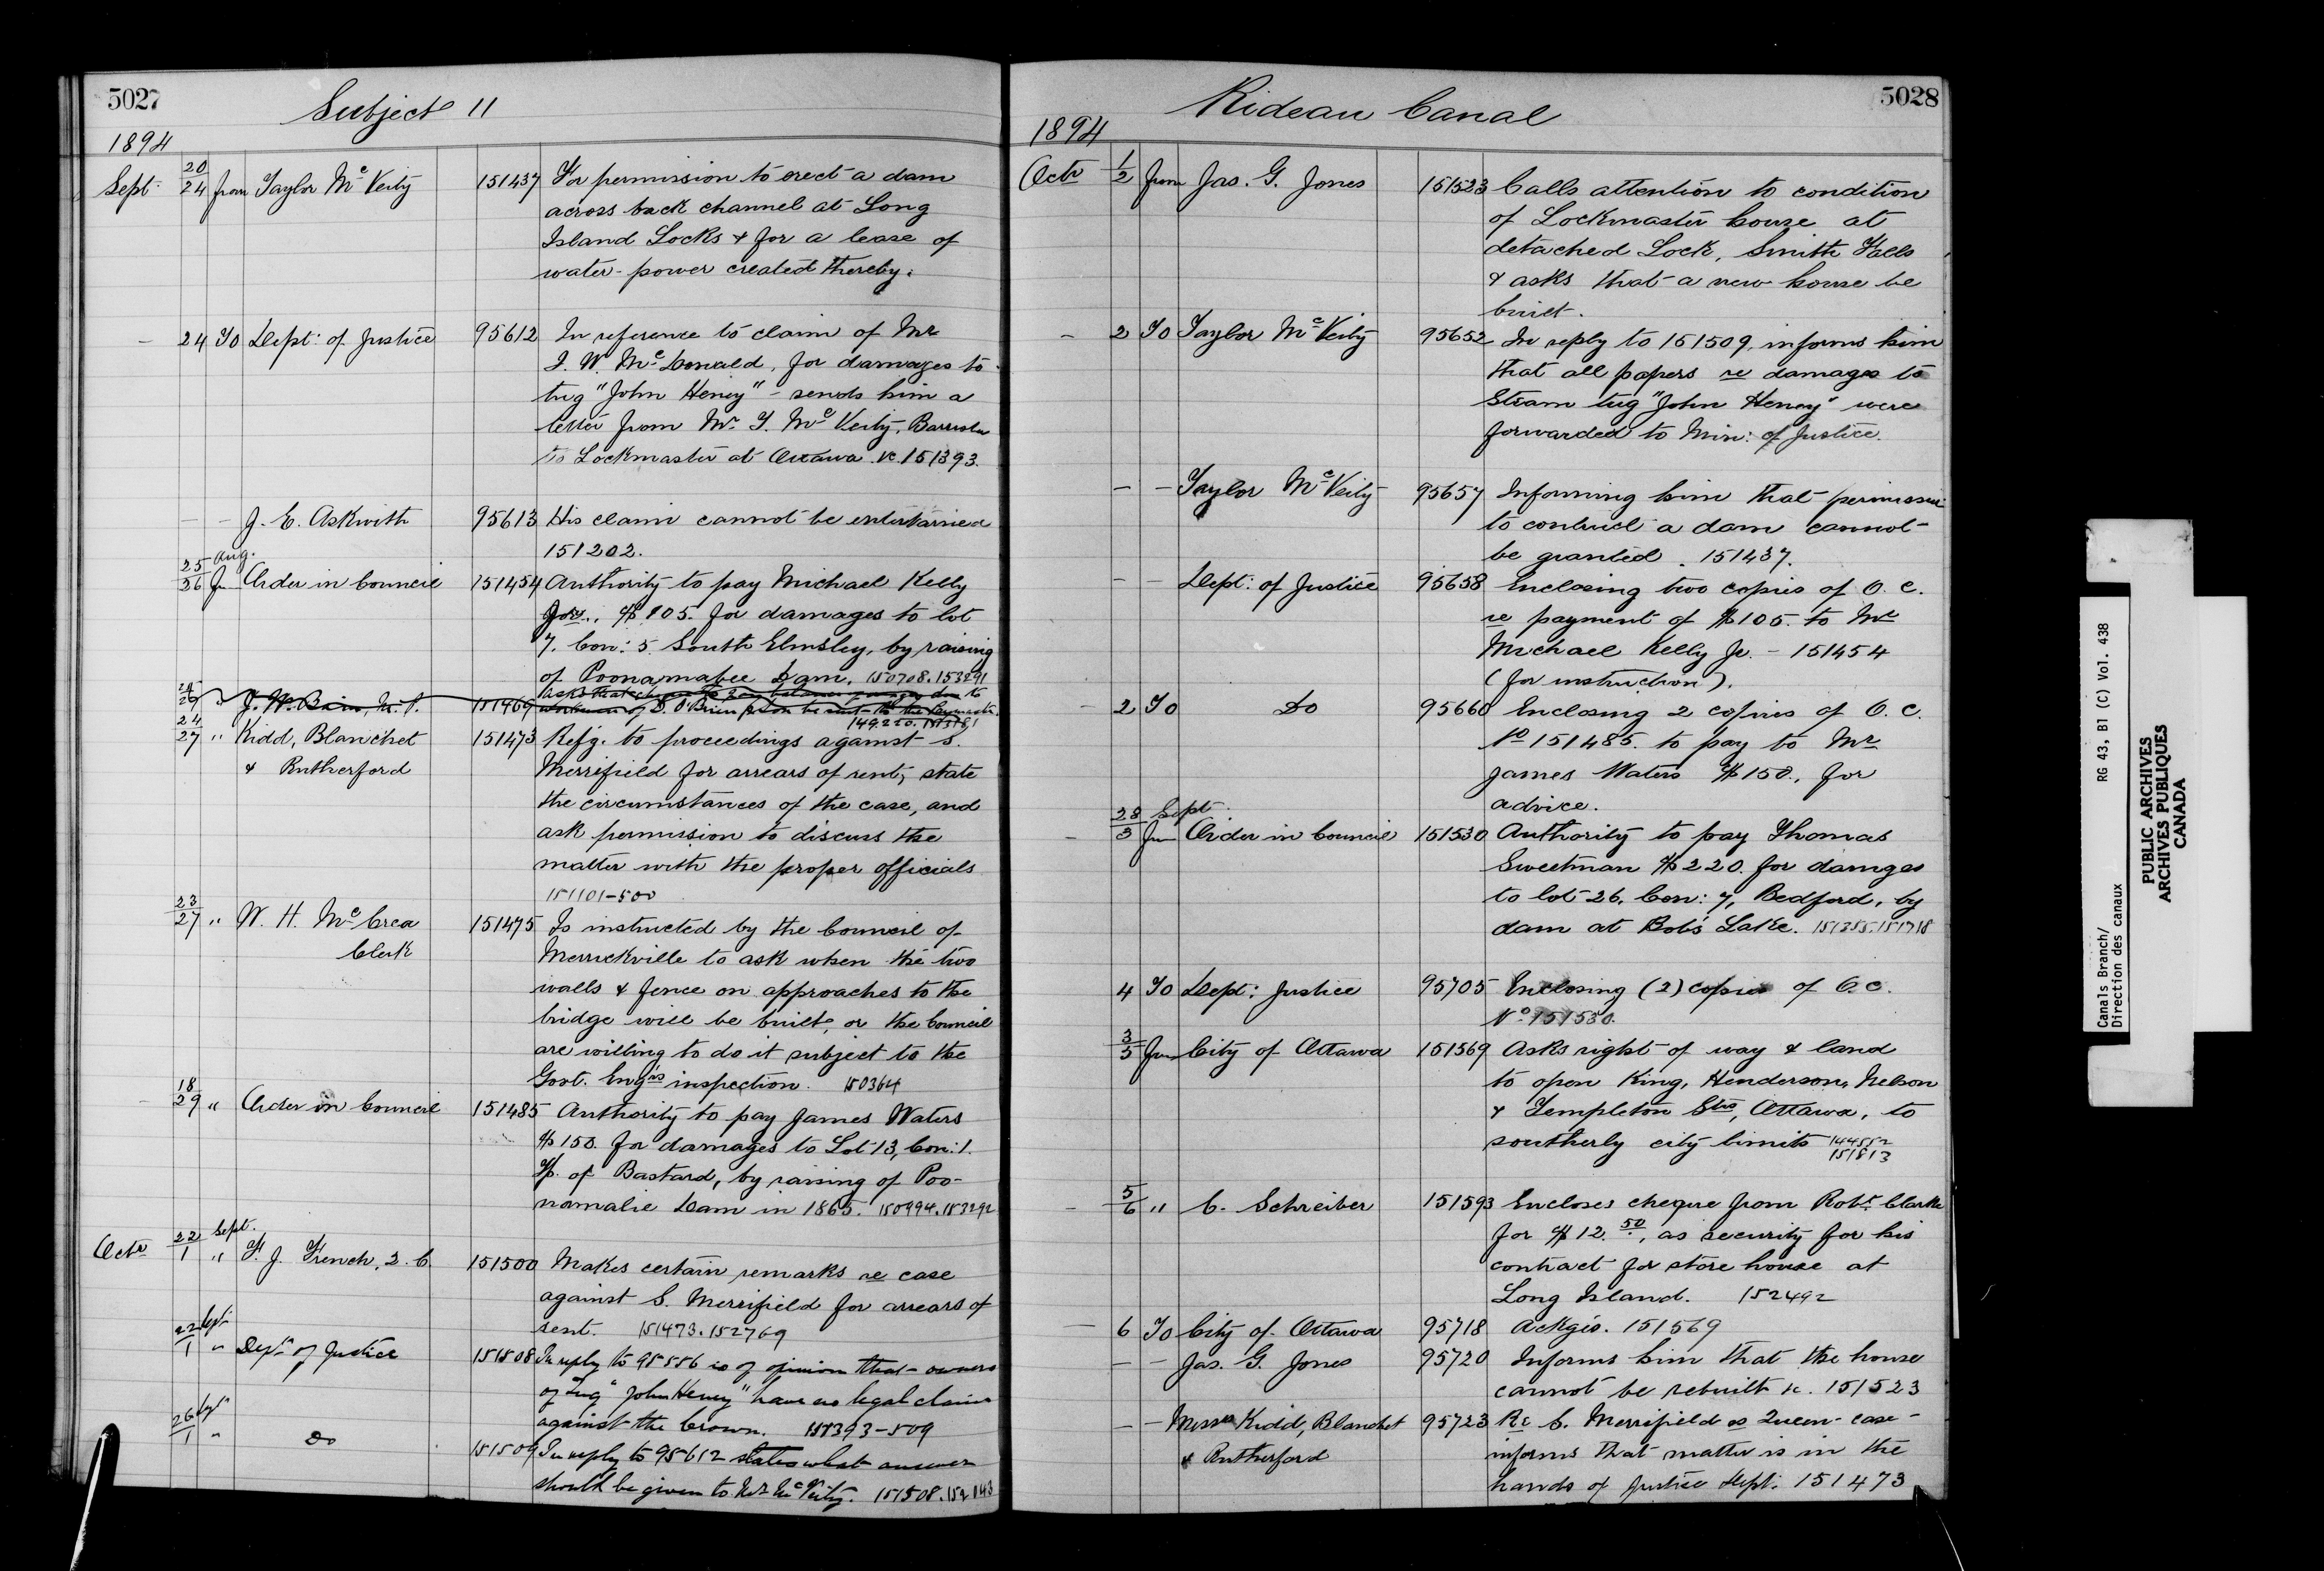 5027
Subject 11
1894
Sept. 20/24 from Taylor McVeity 151437 For permission to erect a dam
across back channel at Long
Island Locks & for a lease of
water-power created thereby.
— 24 To Dept: of Justice 95612 In reference to claim of Mr
J. W. McDonald, for damages to
tug "John Heney" - sends him a
letter from Mr. T. McVeity, Barrister
to Lockmaster at Ottawa. vc. 151393.
— — J. E. Askwith 95613 His claim cannot be entertained
151202.
25 Aug./26 Fm Order in Council 151454 Authority to pay Michael Kelly
Jnr., $105. for damages to lot
7. Con: 5. South Elmsley, by raising
of Poonamalee Dam. 150708. 153291
24/26 " J. W. Bain, M.P. 151469 Asks that cheque for any balance due to
workmen of D. O'Brien be sent to the Paymaster.
149250. 151581
24/27 " Kidd, Blanchet 151473 Refg. to proceedings against S.
& Rutherford Merrifield for arrears of rent; state
the circumstances of the case, and
ask permission to discuss the
matter with the proper officials
151101-500
23/27 " W. H. McCrea 151475 Is instructed by the Council of
Clerk Merrickville to ask when the two
walls & fence on approaches to the
bridge will be built, or the Council
are willing to do it subject to the
Govt. Engrs inspection. 150364
— 18/29 " Order in Council 151485 Authority to pay James Waters
$150. for damages to Lot 13, Con: 1.
Tp. of Bastard, by raising of Poo-
namalie Dam in 1865. 150994. 153292
Octr 22 Sept./1 " F. J. French, Q.C. 151500 Makes certain remarks re case
against S. Merrifield for arrears of
rent. 151473. 152769
22 Sept/1 " Dept of Justice 151508 In reply to 95556 is of opinion that owners
of Tug "John Heney" have no legal claim
against the Crown. 151393-509
26 Sept/1 " Do 151509 In reply to 95612 states what answer
should be given to Mr McVeity. 151508. 152143
5028
Rideau Canal
1894
Octr 1/2 from Jas. G. Jones 151523 Calls attention to condition
of Lockmaster house at
detached Lock, Smiths Falls
& asks that a new house be
built.
— 2 To Taylor McVeity 95652 In reply to 151509, informs him
that all papers re damages to
Steam tug "John Heney" were
forwarded to Min: of Justice.
— — Taylor McVeity 95657 Informing him that permission
to contruct a dam cannot
be granted. 151437.
— — Dept: of Justice 95658 Enclosing two copies of O. C.
re payment of $105. to Mr
Michael Kelly Jr. - 151454
(for instruction).
— 2 To Do 95660 Enclosing 2 copies of O. C.
No 151485. to pay to Mr
James Waters $150., for
advice.
— 28 Sept./3 Fm Order in Council 151530 Authority to pay Thomas
Sweetman $220. for damges
to lot 26, Con: 7, Bedford, by
dam at Bobs Lake. 151355. 151718
4 To Dept: Justice 95705 Enclosing (2) copies of O.C.
No. 151530.
3/5 From City of Ottawa 151569 Asks right of way & land
to open King, Henderson, Nelson
& Templeton Sts, Ottawa, to
southerly city limits 144552
151813
— 5/6 " C. Schreiber 151593 Encloses cheque from Robt. Clarke
for $12.50, as security for his
contract for store house at
Long Island. 152492
— 6 To City of Ottawa 95718 Ackgs. 151569
— — Jas. G. Jones 95720 Informs him that the house
cannot be rebuilt vc. 151523
— — Messrs Kidd, Blanchet 95723 Re S. Merrifield vs Queen - case -
& Rutherford informs that matter is in the
hands of Justice Dept: 151473
Canals Branch/
Direction des canaux
RG 43, B1 (C) Vol. 438
PUBLIC ARCHIVES
ARCHIVES PUBLIQUES
CANADA